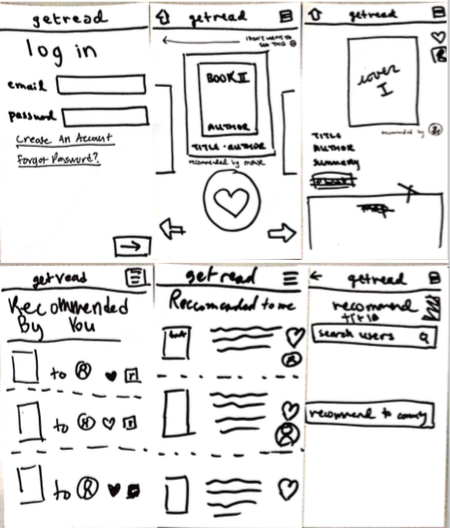 getread
log in
email
password
Create An Account
Forgot Password?
getread
I don't want to
see this
BOOK II
AUTHOR
TITLE · AUTHOR
recomended by MARK
getread
cover
I
recomended by
TITLE
AUTHOR
summary
map
getread
Reccommended
By You
to R
to H
to R
getread
Reccomended to me
book
getread
recommend
title
search users